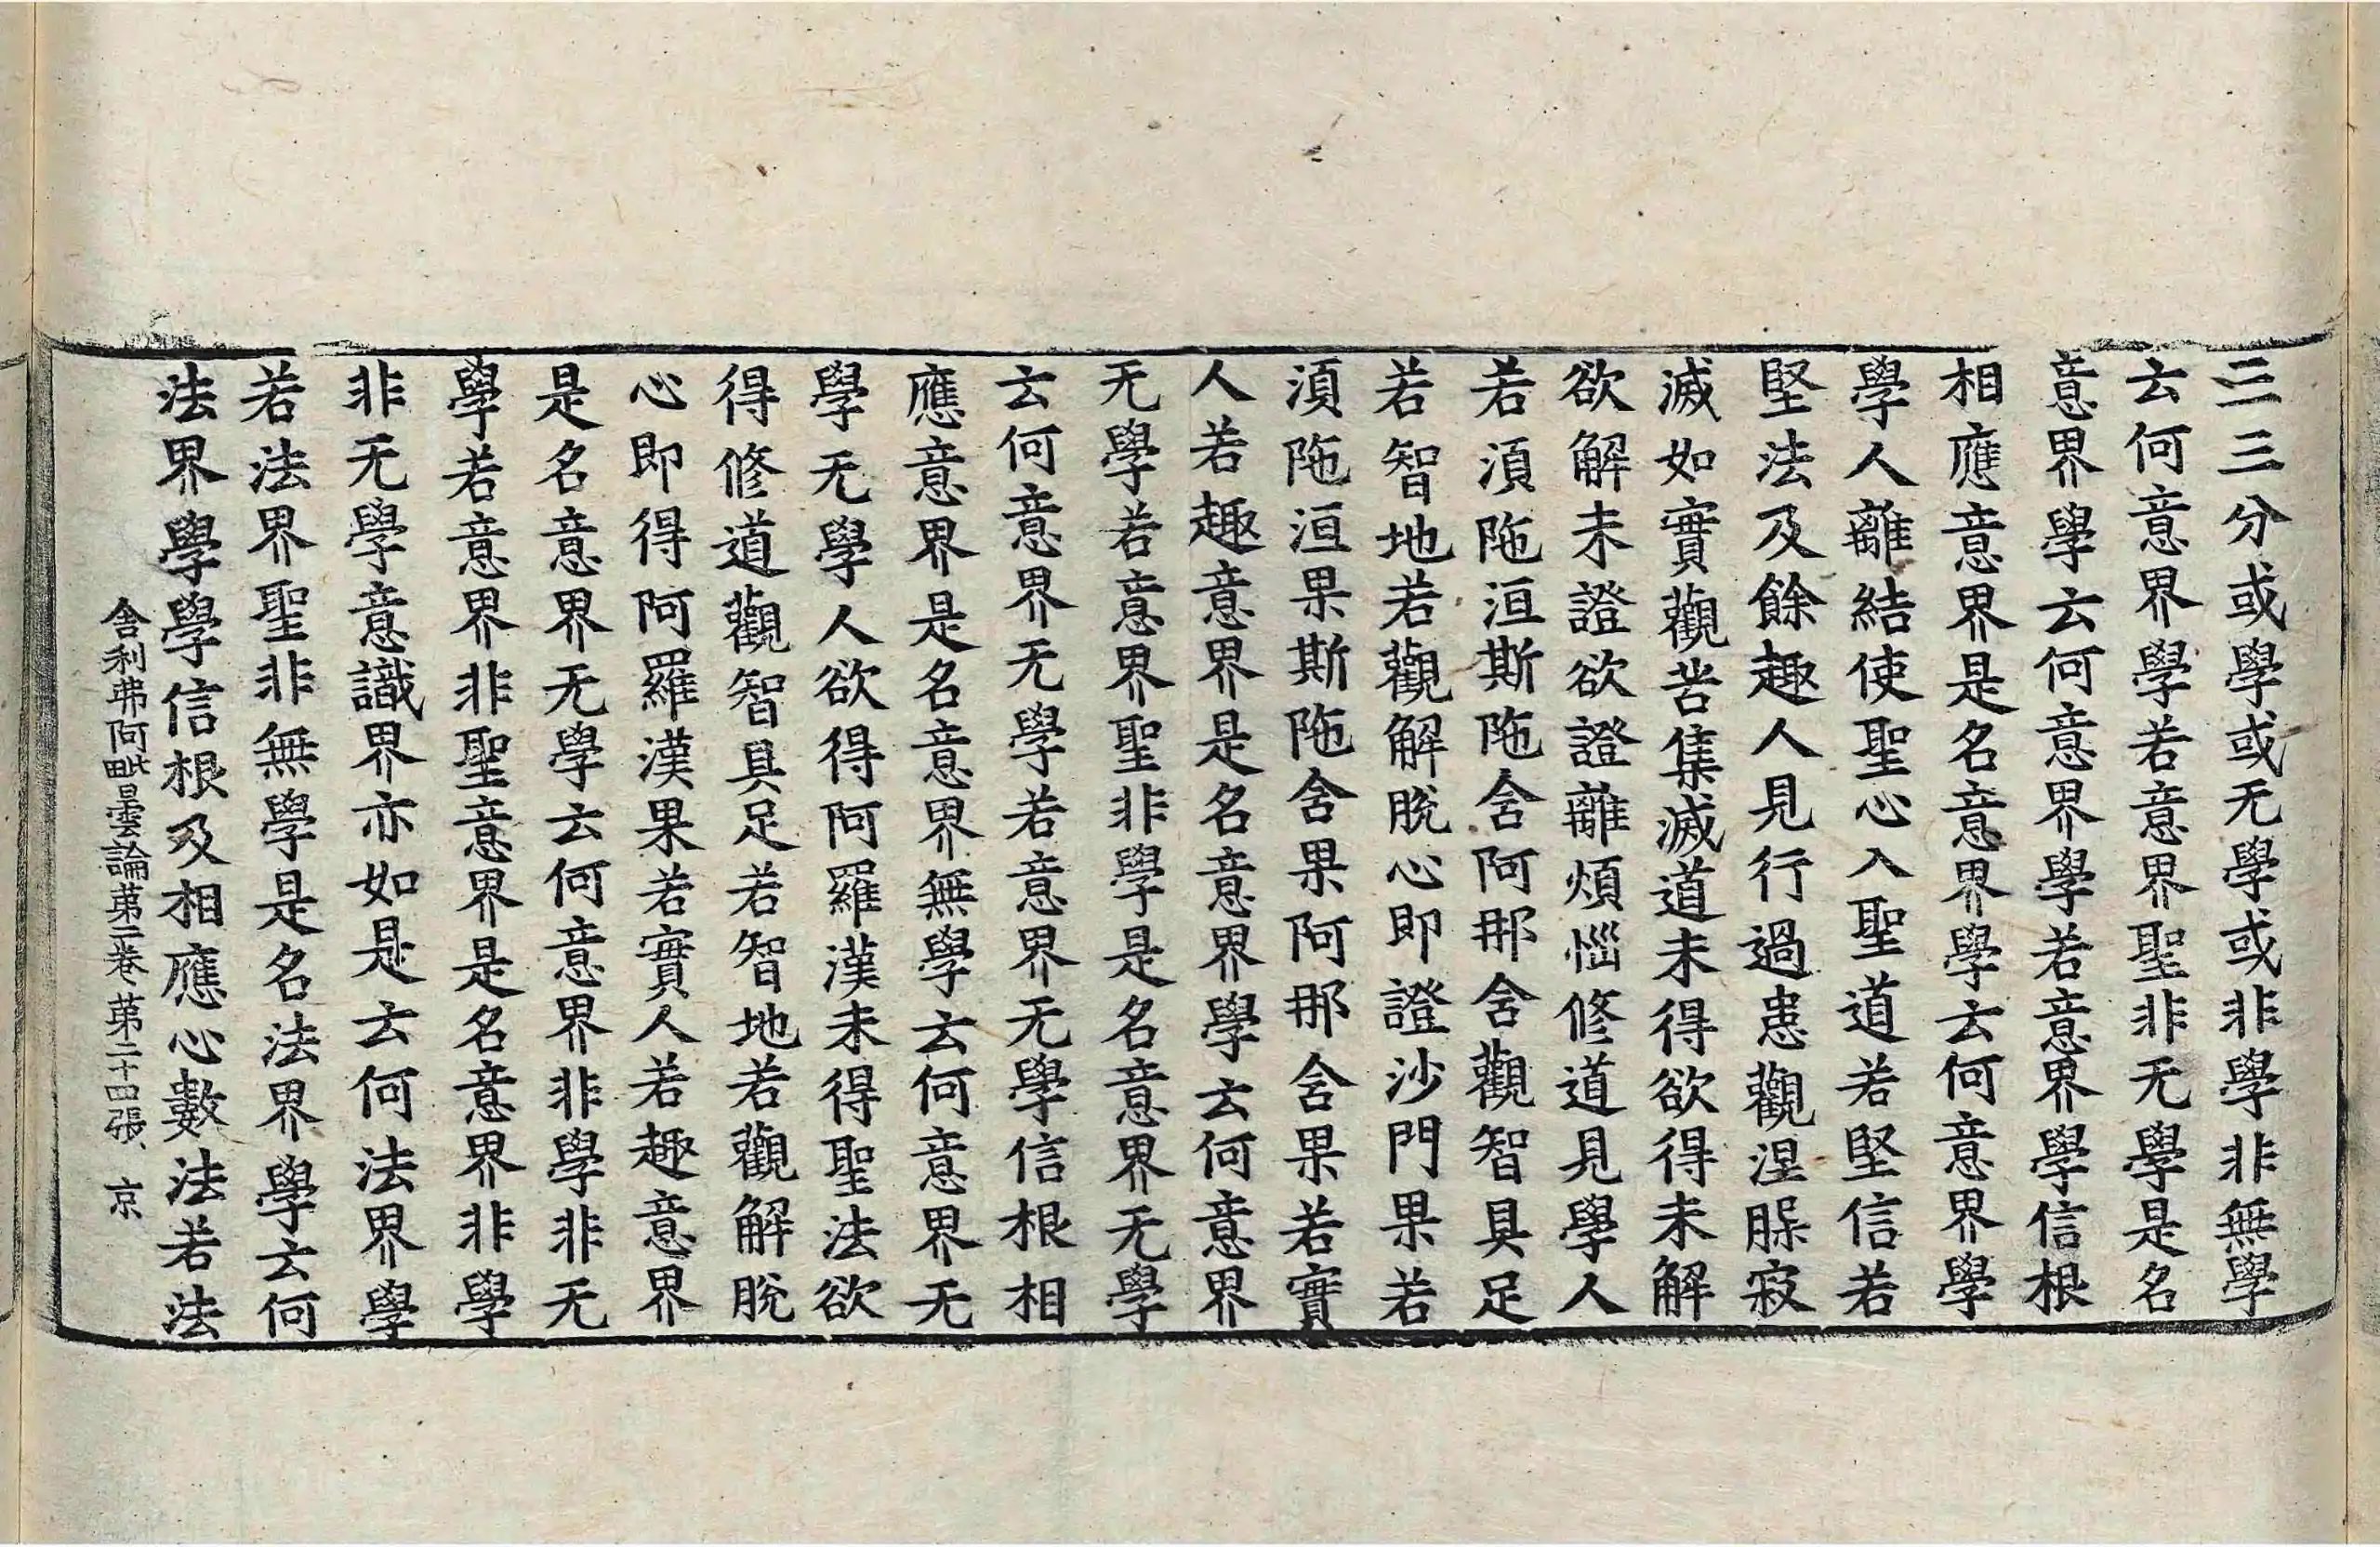 三三分或學或无學或非學非無學
云何意界學若意界聖非无學是名
意界學云何意界學若意界學信根
相應意界是名意界學云何意界學
學人離結使聖心入聖道若堅信若
堅法及餘趣人見行過患觀涅槃寂
滅如實觀苦集滅道未得欲得未解
欲解未證欲證離煩惱修道見學人
若湏陁洹斯陁含阿那含觀智具足
若智地若觀解脫心即證沙門果若
湏陁洹果斯陁含果阿那含果若實
人若趣意界是名意界學云何意界
无學若意界聖非學是名意界无學
云何意界无學若意界无學信根相
應意界是名意界無學云何意界无
學无學人欲得阿羅漢未得聖法欲
得修道觀智具足若智地若觀解脫
心即得阿羅漢果若實人若趣意界
是名意界无學云何意界非學非无
學若意界非聖意界是名意界非學
非无學意識界亦如是云何法界學
若法界聖非無學是名法界學云何
法界學學信根及相應心數法若法
舍利弗阿毗曇論苐二卷 苐二十四張 京